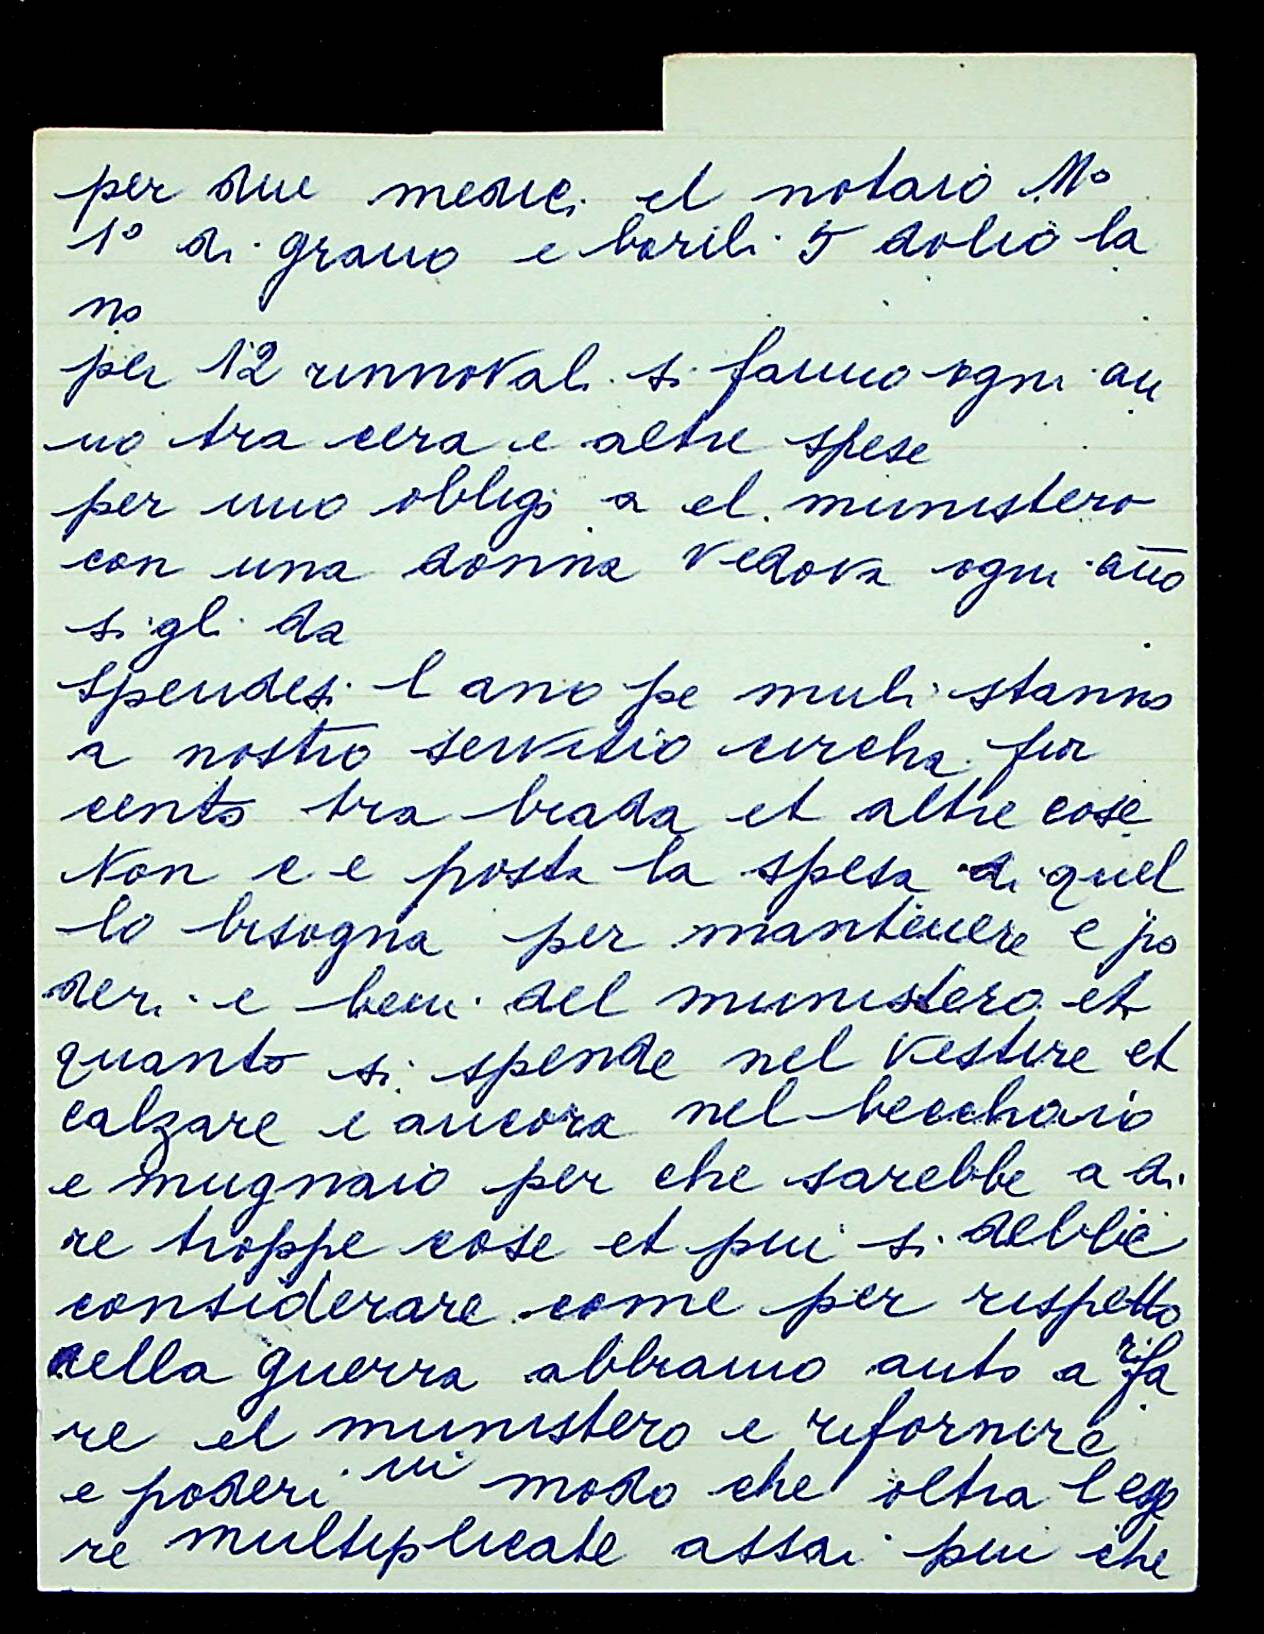 per due medici el notaio Mo
1o di grano e barili 5 dolio la
no
per 12 rinnovali si fanno ogni an
no tra cera e altre spese
per uno obligo a el munistero
con una donna vedova ogni año
si gli da
spendesi l ano pe muli stanno
a nostro servitio circha fior
cento tra biada et altre cose
Non c e posta la spesa di quel
lo bisogna per mantenere e po
deri e beni del munistero et
quanto si spende nel vestire et
calzare e ancora nel becchaio
e mugnaio per che sarebbe a di
re troppe cose et piu si debbe
considerare come per rispetto
della guerra abbiamo auto a rifa
re el munistero e rifornire
e poderi in modo che oltra l esse
re multiplicate assai piu che